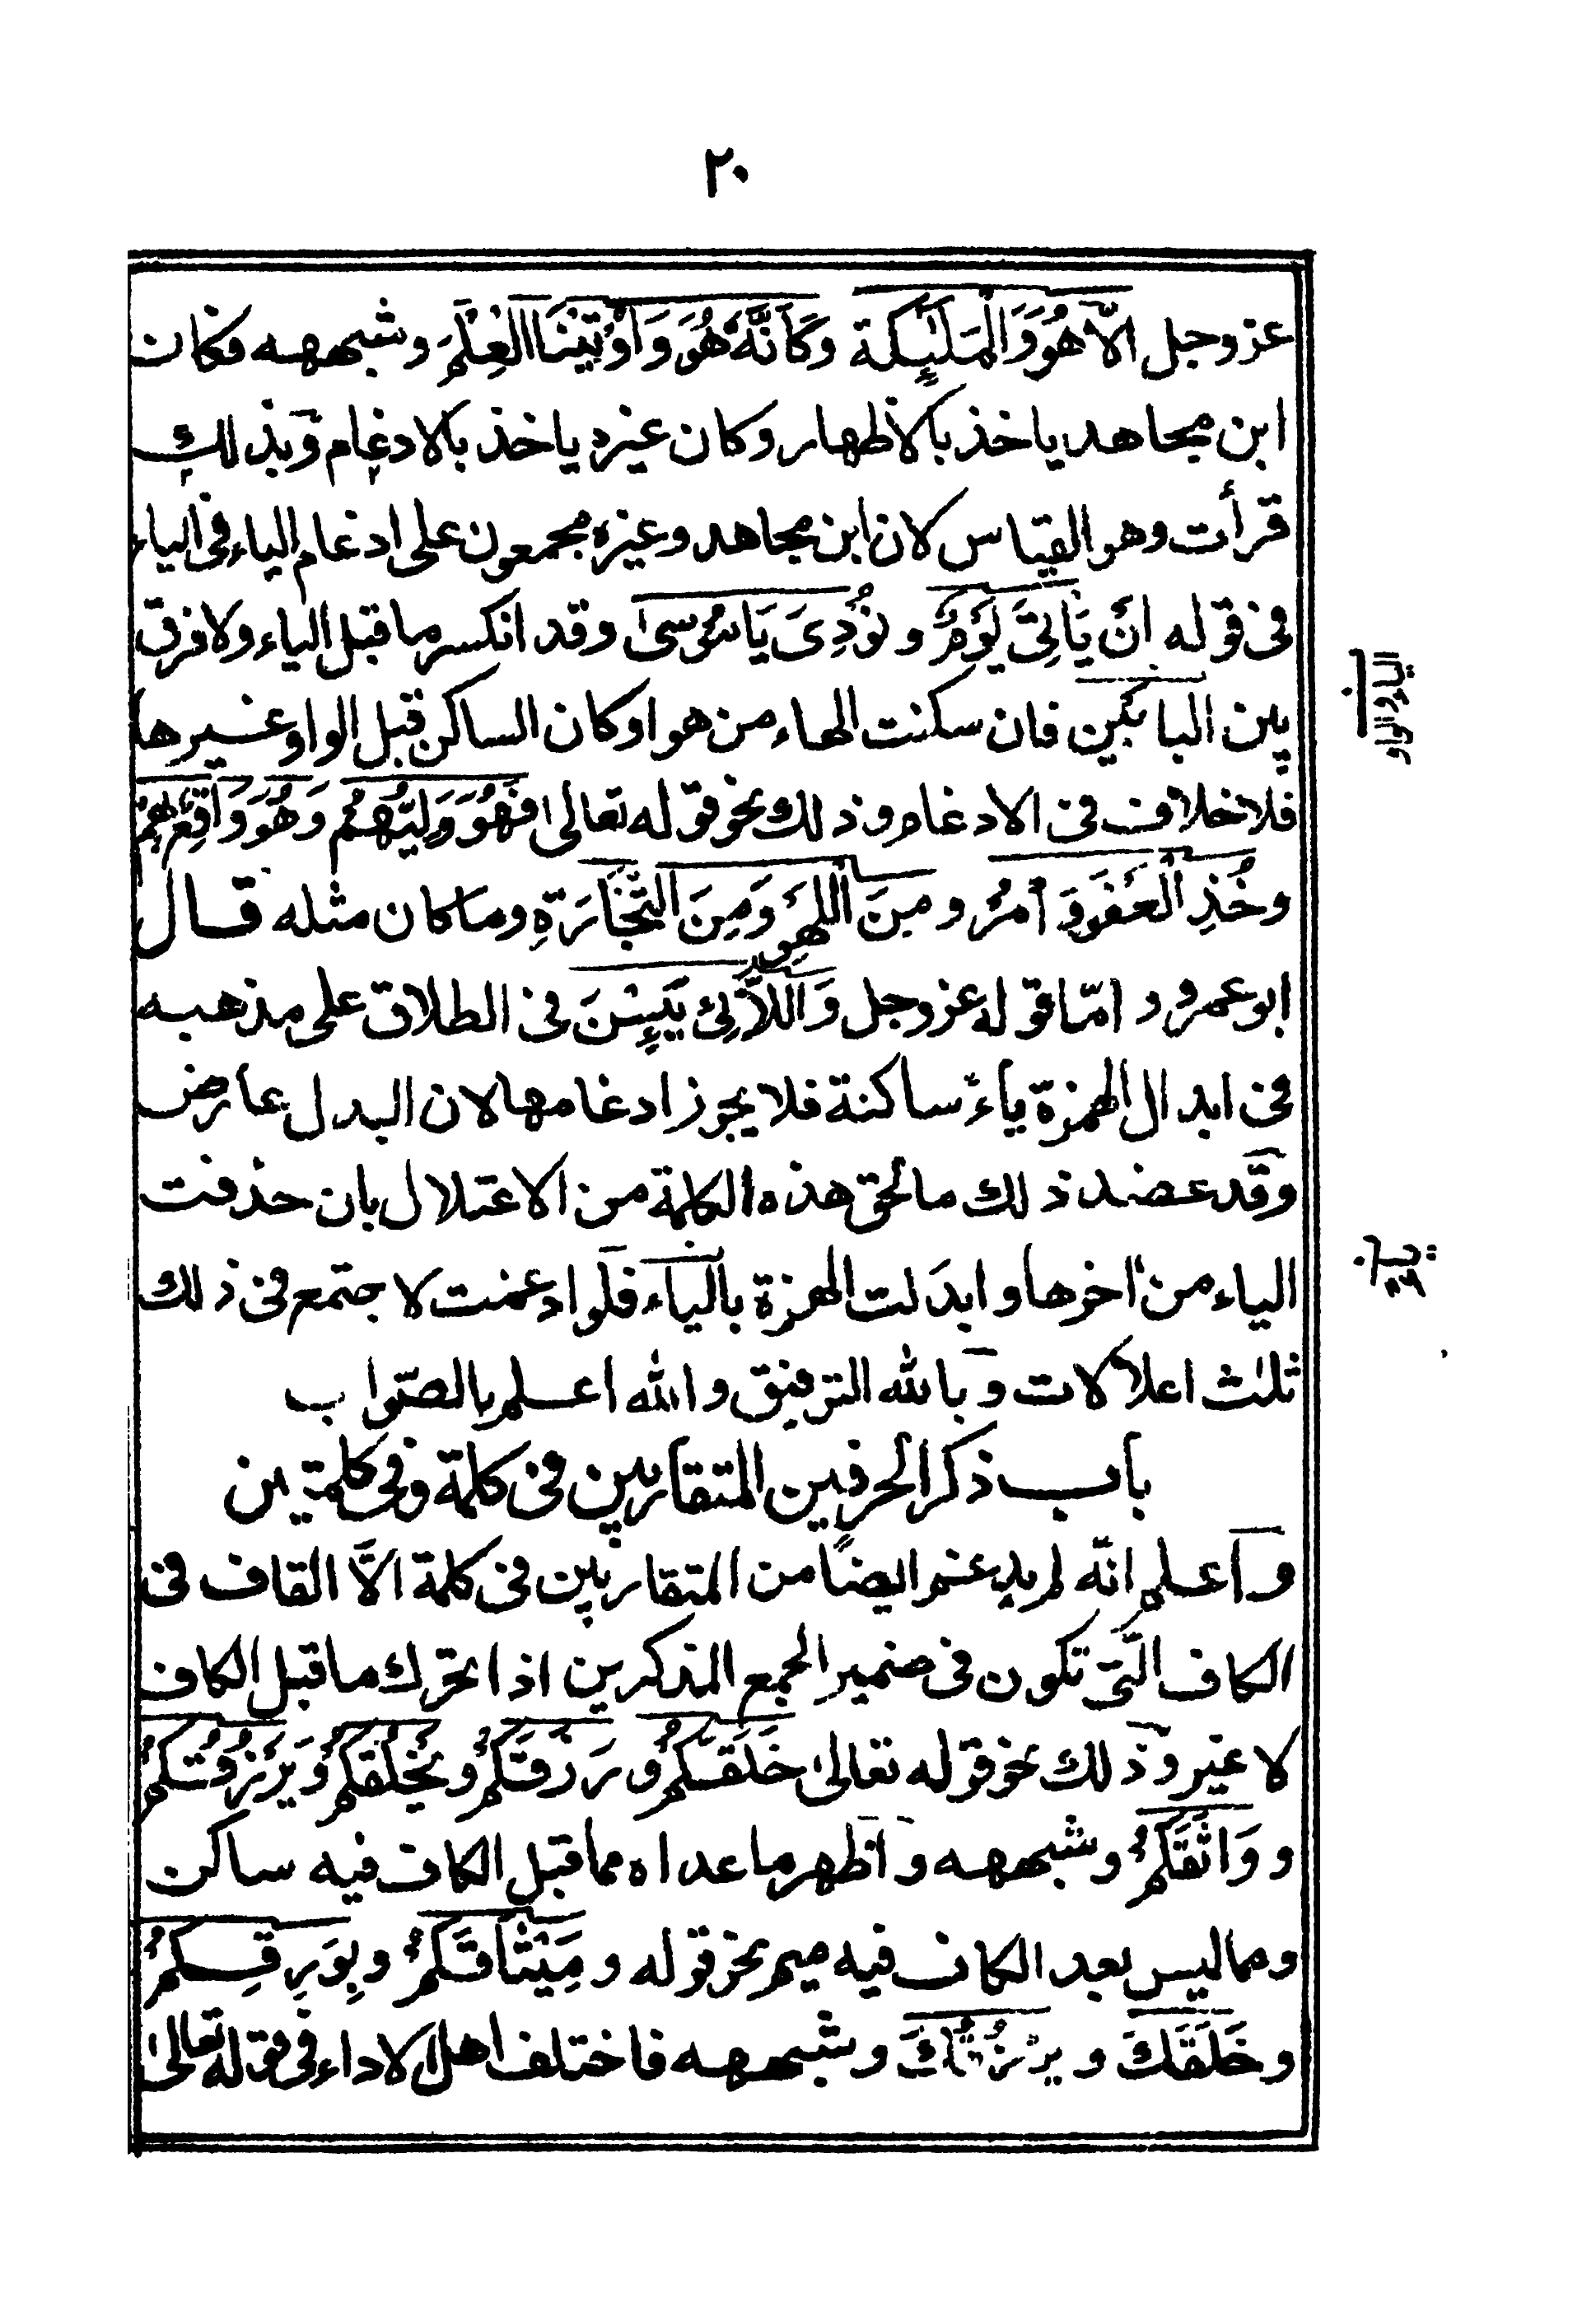 ٢٠
عز وجل اِلَّا هُوَ وَالْمَلٰٓئِكَة وَكَاَنَّهٗ هُوَ وَاُوْتِيْنَا الْعِلْمَ وشبهه فكان
ابن مجاهد ياخذ بالاظهار وكان غيره ياخذ بالادغام وبذلك
قرأت وهو القياس لان ابن مجاهد وغيره مجمعون على ادغام الياء فى الياء
فى قوله اَنْ يَاْتِيَ يَوْمٌ و نُوْدِيَ يَامُوْسىٰ وقد انكسر ما قبل الياء ولا فرق
بين البابين فان سكنت الهاء من هو او كان الساكن قبل الواو غيرها
فلا خلاف فى الادغام وذلك نحو قوله تعالى فَهُوَ وَلِيُّهُمْ وَهُوَ وَاقِعٌ بِهِمْ
وخُذِ الْعَفْوَ وَأْمُرْ و مِنَ اللَّهْوِ وَمِنَ التِّجَارَةِ وما كان مثله قال
ابو عمرو و امّا قوله عز وجل وَاللَّآئِ يَئِسْنَ فى الطلاق على مذهبه
فى ابدال الهمزة ياءً ساكنة فلا يجوز ادغامها لان البدل عارض
وقد عضد ذلك مالحق هذه الكلمة من الاعتلال بان حذفت
الياء من اخرها و ابدلت الهمزة بالياء فلو ادغمت لاجتمع فى ذلك
ثلث اعلالات وبالله التوفيق والله اعلم بالصّواب
باب ذكر الحرفين المتقاربين فى كلمة وفى كلمتين
واعلم انّه لم يدغم ايضًا من المتقاربين فى كلمة الاَّ القاف فى
الكاف الّتى تكون فى ضمير الجمع المذكرين اذا تحرك ما قبل الكاف
لا غير وذلك نحو قوله تعالىٰ خَلَقَكُمْ و رَزَقَكُمْ و يَخْلُقُكُمْ وَيَرْزُقُكُمْ
و وَاثَقَكُمْ وشبهه و اظهر ما عداه مما قبل الكاف فيه ساكن
ومما ليس بعد الكاف فيه ميم نحو قوله و مِيْثَاقَكُمْ و بِوَرِقِكُمْ
و خَلَقَكَ و يَرْزُقُكَ وشبهه فاختلف اهل الاداء فى قوله تعالىٰ